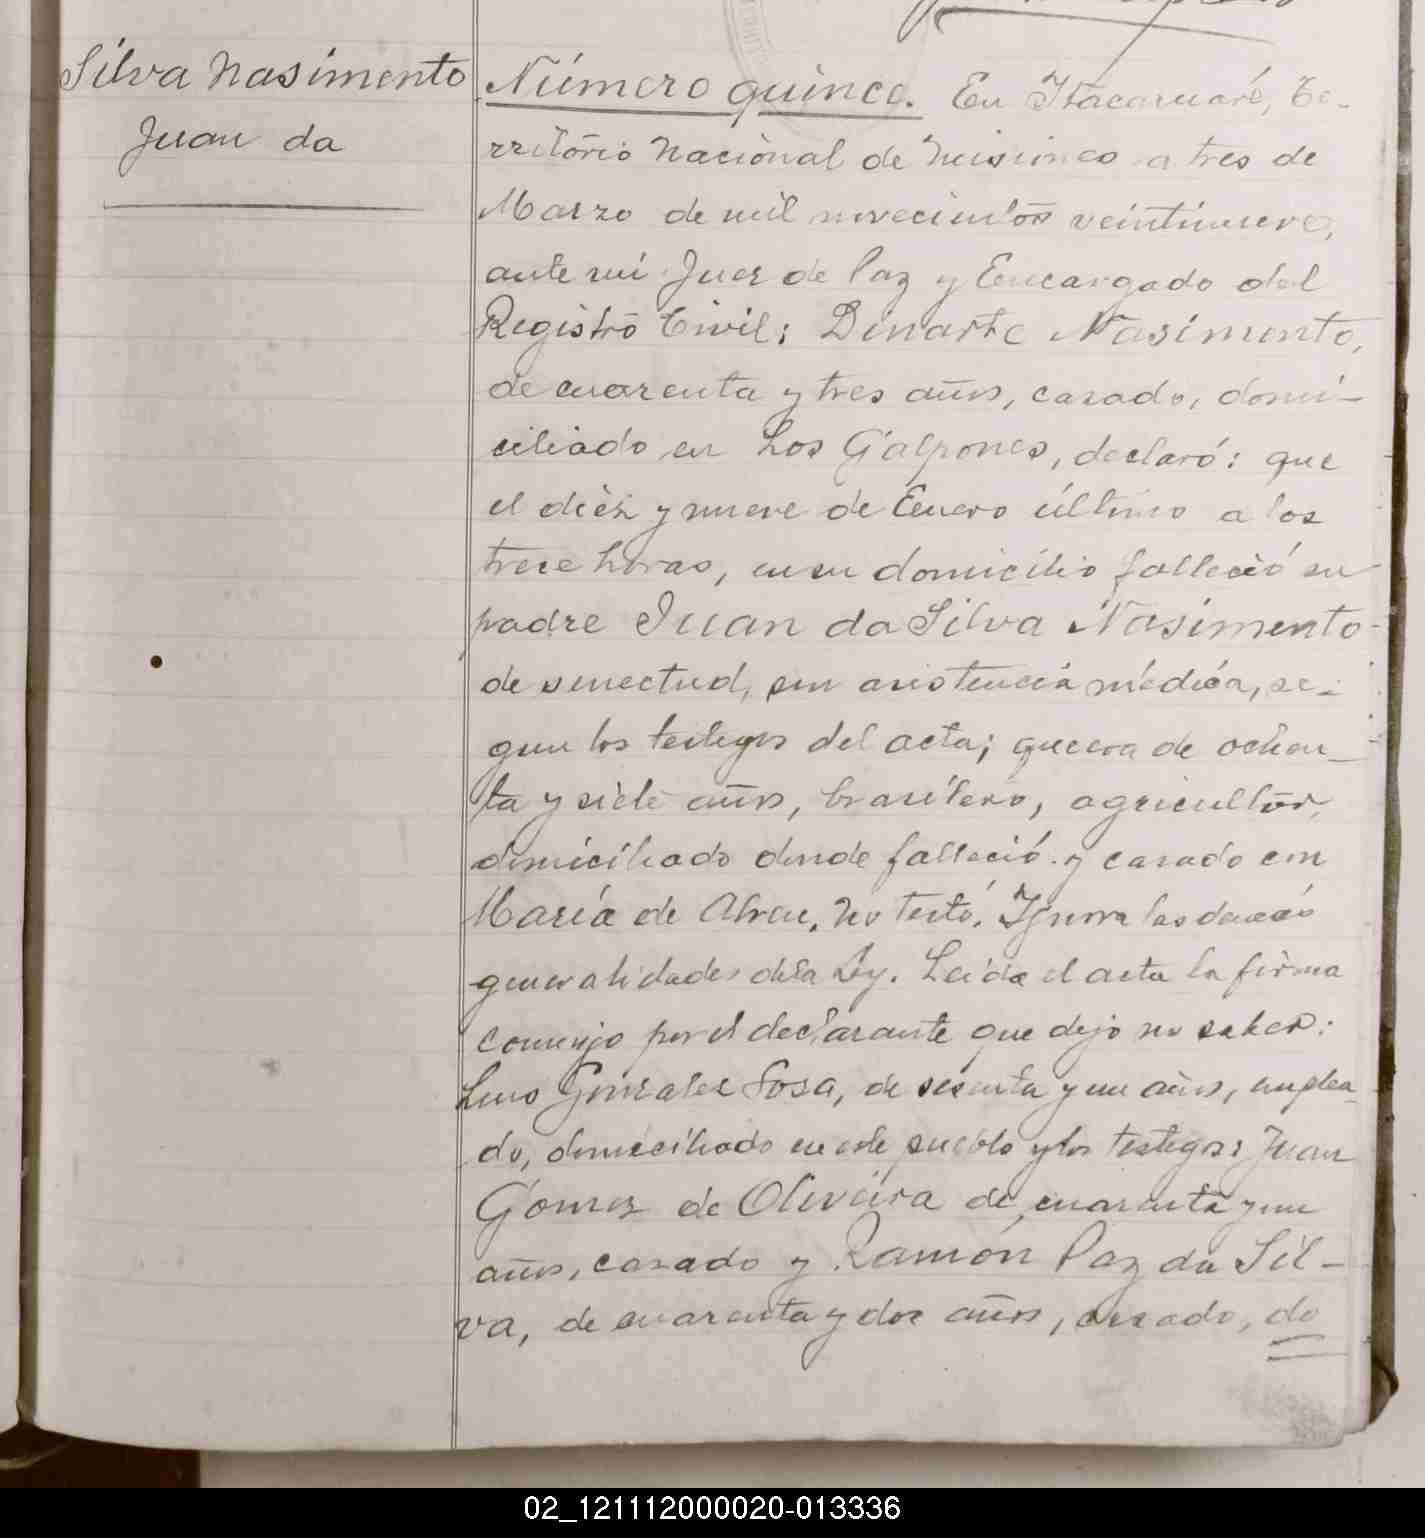 Silva Nasimento
Juan da
Número quince. En Itacaruaré, Te-
rritorio Nacional de Misiones a tres de
Marzo de mil novecientos veintinueve,
ante mí Juez de Paz y Encargado del
Registro Civil; Dinarte Nasimento,
de cuarenta y tres años, casado, domi-
ciliado en Los Galpones, declaró: que
el diez y nueve de Enero último a los
trece horas, en su domicilio falleció su
padre Juan da Silva Nasimento
de senectud, sin asistencia médica, se-
gun los testigos del acta; que era de ochen-
ta y siete años, brasilero, agricultor,
domiciliado donde falleció y casado con
María de Abreu, no testó. Ignora las demás
generalidades de la Ley. Leida el acta la firma
conmigo por el declarante que dijo no saber:
Luis Gonzalez Sosa, de sesenta y un años, emplea-
do, domiciliado en este pueblo y los testigos: Juan
Gomez de Oliveira de cuarenta y un
años, casado y Ramón Paz da Sil-
va, de cuarenta y dos años, casado, do
02_121112000020-013336